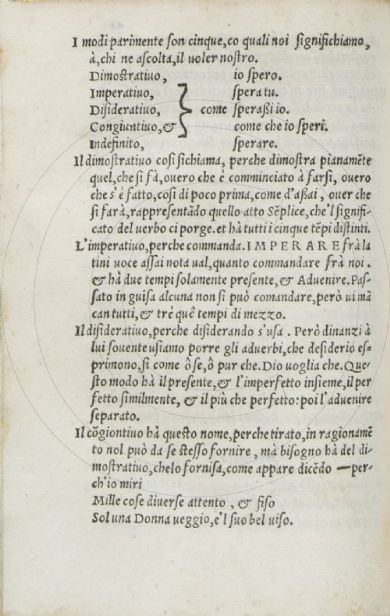 I modi parimente son cinque, co quali noi significhiamo,
à, chi ne ascolta, il uoler nostro.
Dimostratiuo, io spero.
Imperatiuo, spera tu.
Disideratiuo, come speraßi io.
Congiuntiuo, & come che io speri.
Indefinito, sperare.
Il dimostratiuo cosi sichiama, perche dimostra pianamẽte
quel, che si fà, ouero che è comminciato à farsi, ouero
che s'è fatto, cosi di poco prima, come d'aßai, ouer che
si farà, rappresentãdo questo atto Sẽplice, che'l signifi-
cato del uerbo ci porge. et hà tutti i cinque tẽpi distinti.
L'imperatiuo, perche commanda. IMPERARE frà la
tini uoce assai nota ual, quanto commandare frà noi.
& hà due tempi solamente presente, & Aduenire. Pas-
sato in guisa alcuna non si può comandare, però ui mã
can tutti, & tre quẽ tempi di mezzo.
Il disideratiuo, perche disiderando s'usa. Però dinanzi à
lui souente usiamo porre gli aduerbi, che desiderio es-
primono, si come ò se, ò pur che. Dio uoglia che. Que-
sto modo hà il presente, & l'imperfetto insieme, il per
fetto similmente, & il più che perfetto: poi l'aduenire
separato.
Il cõgiontiuo hà questo nome, perche tirato, in ragionamẽ
to nol può da se stesso fornire, mà bisogno hà del di-
mostratiuo, chelo fornisa, come appare dicẽdo — per-
ch'io miri
Mille cose diuerse attento, & fiso
Sol una Donna ueggio, e'l suo bel uiso.